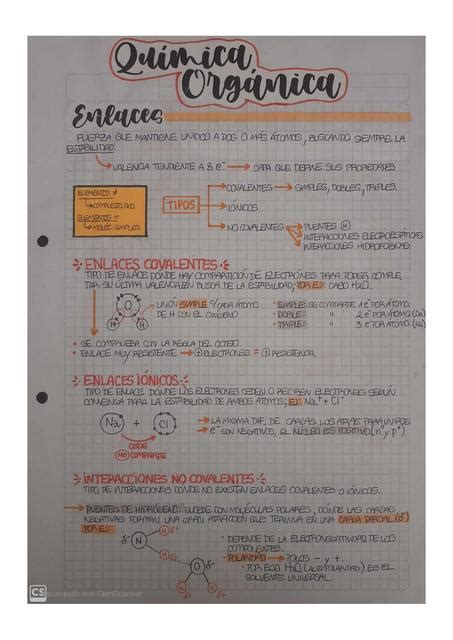 Química
Orgánica
Enlaces
FUERZA QUE MANTIENE UNIDOS A DOS O MÁS ÁTOMOS, BUSCANDO SIEMPRE LA
ESTABILIDAD.
VALENCIA TENDIENTE A 8 e⁻ → CAPA QUE DEFINE SUS PROPIEDADES
ELEMENTOS ≠
COMPUESTOS
ELEMENTOS =
MOLÉC. SIMPLES
TIPOS
COVALENTES → SIMPLES, DOBLES, TRIPLES.
IÓNICOS
NO COVALENTES
PUENTES H
INTERACCIONES ELECTROESTÁTICAS
INTERACCIONES HIDROFÓBICAS
ENLACES COVALENTES
TIPO DE ENLACE DONDE HAY COMPARTICIÓN DE ELECTRONES PARA PODER COMPLE_
TAR SU ÚLTIMA VALENCIA EN BUSCA DE LA ESTABILIDAD, POR EJ: CASO H₂O.
O
H H
UNIÓN SIMPLE C/CADA ÁTOMO
DE H CON EL OXÍGENO
• SIMPLE: SE COMPARTE 1 e⁻ POR ÁTOMO.
• DOBLE: " 2 e⁻ POR ÁTOMO
• TRIPLE: " 3 e⁻ POR ÁTOMO.
• SE COMPRUEBA CON LA REGLA DEL OCTETO.
• ENLACE MUY RESISTENTE → + ELECTRONES = + RESISTENCIA
ENLACES IÓNICOS
TIPO DE ENLACE DONDE LOS ELECTRONES CEDEN O RECIBEN ELECTRONES SEGÚN
CONVENGA PARA LA ESTABILIDAD DE AMBOS ÁTOMOS; EJ: Na⁺ + Cl⁻
Na + Cl
CEDE
NO COMPARTE
→ LA MISMA DIF. DE CARGAS LOS ATRAE PARA UNIRSE
→ e⁻ SON NEGATIVOS, EL NÚCLEO ES POSITIVO (n° y p⁺)
INTERACCIONES NO COVALENTES
TIPO DE INTERACCIONES DONDE NO EXISTEN ENLACES COVALENTES O IÓNICOS.
→ PUENTES DE HIDRÓGENO: SUCEDE CON MOLÉCULAS POLARES, DONDE LAS CARGAS
NEGATIVAS FORMAN UNA GRAN ATRACCIÓN QUE TERMINA EN UNA CARGA PARCIAL (δ⁻)
POR EJ:
δ⁻ N H δ⁺
H δ⁺
δ⁻ O
H H
δ⁺ δ⁺
• DEPENDE DE LA ELECTRONEGATIVIDAD DE LOS
COMPONENTES.
• POLARIDAD → POLOS - y +.
• POR ESO H₂O (ALTA POLARIDAD) ES EL
SOLVENTE UNIVERSAL
CS Escaneado con CamScanner